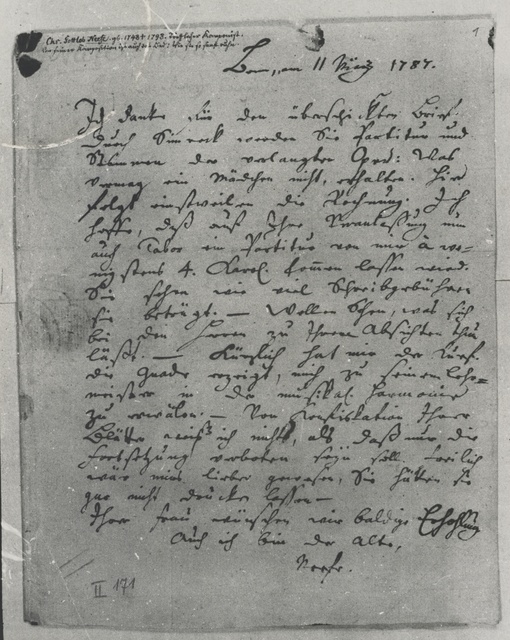 Chr. Gottlob Neefe, gb. 1748 † 1798.
1
Bonn, den 11 März 1787.
Ich danke für den überschickten Brief.
Durch Simrock werden Sie Partitur und
Stimmen der verlangten Oper: Was
vermag ein Mädchen nicht, erhalten. Hier
folgt einstweilen die Rechnung. Ich
hoffe, daß auf Ihre Veranlassung nun
auch Tabor ein Partitur von mir à we-
nigstens 4. Karol. kommen lassen wird.
Sie sehen wie viel Schreibgebühren
sie beträgt. — Wollen sehen, was sich
bei den Herren zu Ihren Absichten thun
läßt. — Kürzlich hat mir der Kurf.
die Gnade erzeigt, mich zu seinem Lehr=
meister in der musikal. Harmonie
zu erwälen. — Von Konfiskation Ihrer
Blätter weiß ich nichts, als daß nur die
Fortsetzung verboten seyn soll. Freilich
wär mirs lieber gewesen, Sie hätten sie
gar nicht drucken lassen —
Ihrer Frau wünschen wir baldige Erholung
Auch ich bin der alte,
Neefe.
II 171